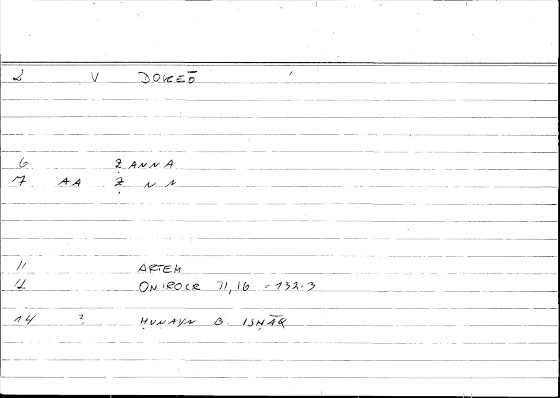 2 V DOKEŌ
6 ẒANNA
7 AA Ẓ N N
11 ARTEM
12 ONIROCR 71,16 = 132.3
14 ? ḤUNAYN B. ISḤĀQ